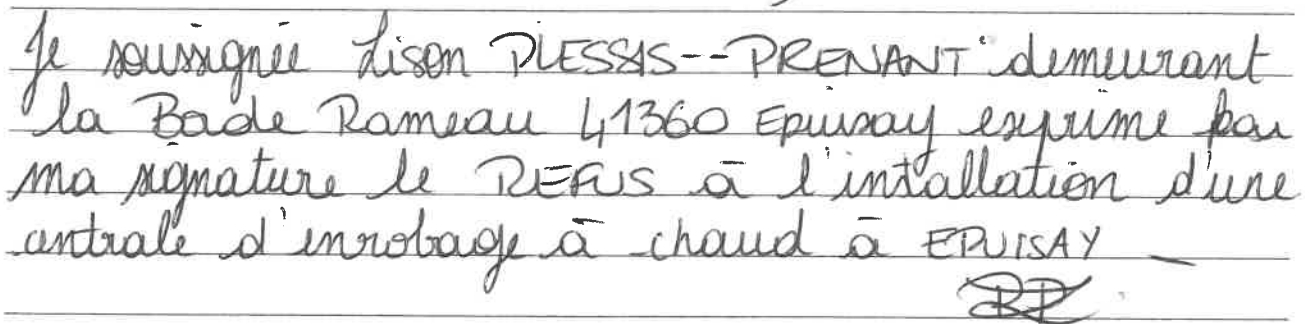 Je soussignée Lison PLESSIS--PRENANT demeurant
la Bade Rameau 41360 Epuisay exprime par
ma signature le REFUS à l'intallation d'une
centrale d'enrobage à chaud à EPUISAY